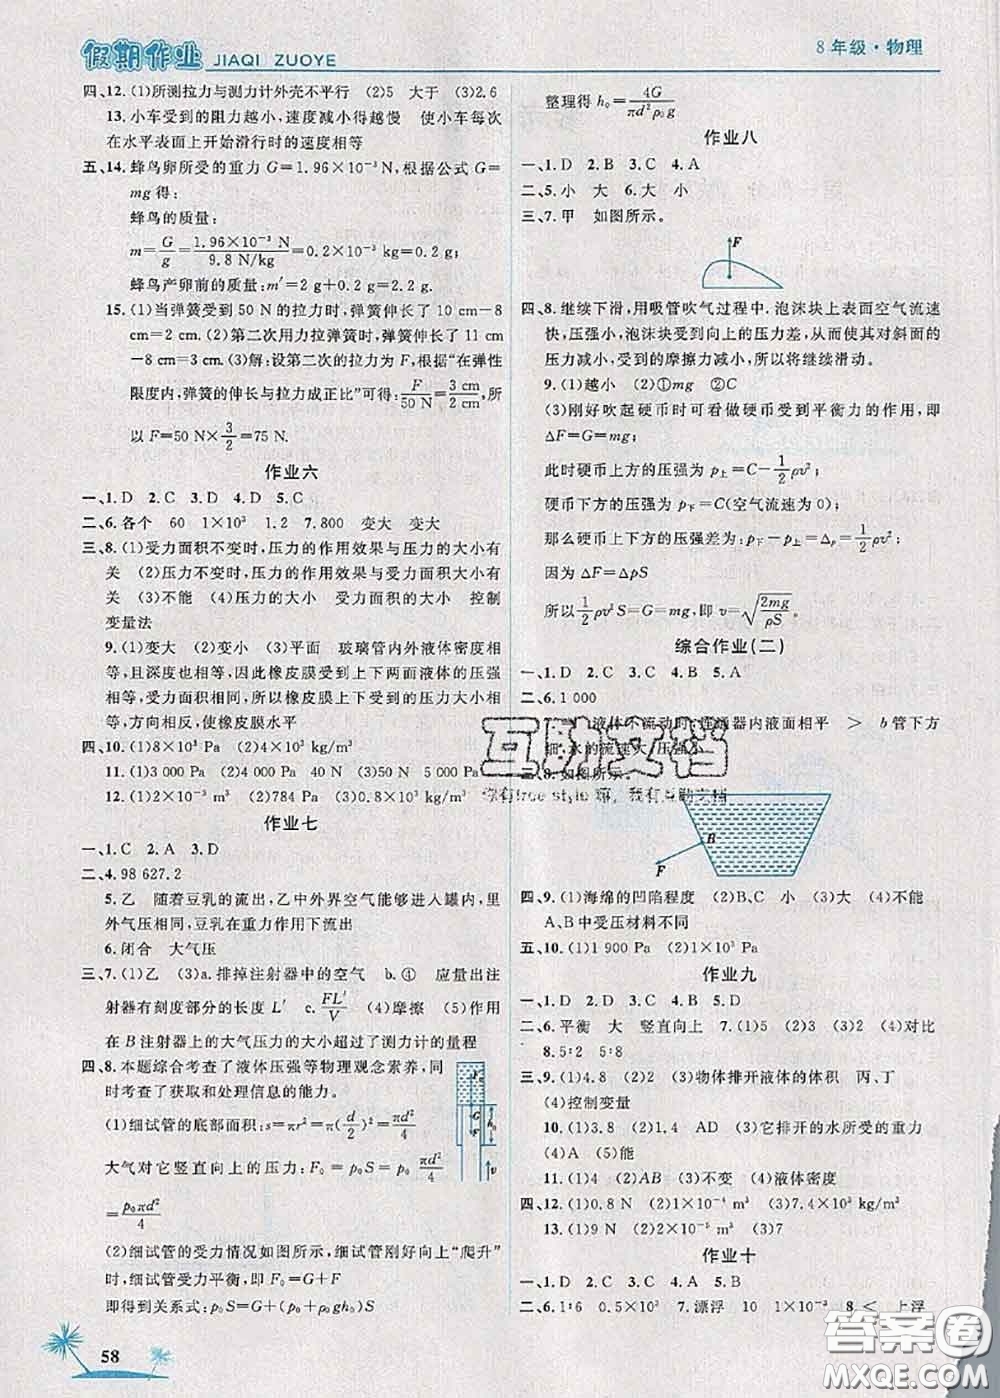 假期作业 JIAQI ZUOYE
8年级·物理
四、12.(1)所测拉力与测力计外壳不平行 (2)5 大于 (3)2.6
13.小车受到的阻力越小,速度减小得越慢 使小车每次
在水平表面上开始滑行时的速度相等
五、14.蜂鸟卵所受的重力G=1.96×10⁻³ N,根据公式G=
mg得:
蜂鸟的质量:
m=G/g=1.96×10⁻³ N/9.8 N/kg=0.2×10⁻³ kg=0.2 g;
蜂鸟产卵前的质量:m′=2 g+0.2 g=2.2 g.
15.(1)当弹簧受到50 N的拉力时,弹簧伸长了10 cm-8
cm=2 cm. (2)第二次用力拉弹簧时,弹簧伸长了11 cm
-8 cm=3 cm. (3)解:设第二次的拉力为F,根据“在弹性
限度内,弹簧的伸长与拉力成正比”可得:F/50 N=3 cm/2 cm,所
以F=50 N×3/2=75 N.
作业六
一、1.D 2.C 3.D 4.D 5.C
二、6.各个 60 1×10³ 1.2 7.800 变大 变大
三、8.(1)受力面积不变时,压力的作用效果与压力的大小有
关 (2)压力不变时,压力的作用效果与受力面积大小有
关 (3)不能 (4)压力的大小 受力面积的大小 控制
变量法
9.(1)变大 (2)变小 (3)平面 玻璃管内外液体密度相
等,且深度也相等,因此橡皮膜受到上下两面液体的压强
相等,受力面积相同,所以橡皮膜上下受到的压力大小相
等,方向相反,使橡皮膜水平
四、10.(1)8×10³ Pa (2)4×10³ kg/m³
11.(1)3 000 Pa (2)4 000 Pa 40 N (3)50 N 5 000 Pa
12.(1)2×10⁻³ m³ (2)784 Pa (3)0.8×10³ kg/m³
作业七
一、1.C 2.A 3.D
二、4.98 627.2
5.乙 随着豆乳的流出,乙中外界空气能够进入罐内,内
外气压相同,豆乳在重力作用下流出
6.闭合 大气压
三、7.(1)乙 (3)a.排掉注射器中的空气 b.① 应量出注
射器有刻度部分的长度L′ c.FL′/V (4)摩擦 (5)作用
在B注射器上的大气压力的大小超过了测力计的量程
四、8.本题综合考查了液体压强等物理观念素养,同
时考查了获取和处理信息的能力.
(1)细试管的底部面积:s=πr²=π(d/2)²=πd²/4
大气对它竖直向上的压力:F₀=p₀S=p₀πd²/4
=p₀πd²/4
(2)细试管的受力情况如图所示,细试管刚好向上“爬升”时
细试管受力平衡,即F₀=G+F
即得到关系式:p₀S=G+(p₀S-ρ₀gh₀)S
G
F
h₀
v
58
整理得h₀=4G/πd²ρ₀g
作业八
一、1.D 2.B 3.C 4.A
二、5.小 大 6.大 小
三、7.甲 如图所示.
F
四、8.继续下滑,用吸管吹气过程中,泡沫块上表面空气流速
快,压强小,泡沫块受到向上的压力差,从而使其对斜面的
压力减小,受到的摩擦力减小,所以将继续滑动.
9.(1)越小 (2)①mg ②C
(3)刚好吹起硬币时可看做硬币受到平衡力的作用,即
△F=G=mg;
此时硬币上方的压强为p上=C-1/2ρv²;
硬币下方的压强为p下=C(空气流速为0)
那么硬币上下方的压强差为:p下-p上=△p=1/2ρv²
因为△F=△pS
所以1/2ρv²S=G=mg,即v=√(2mg/ρS).
综合作业(二)
一、1.D 2.C 3.C 4.B 5.A
二、6.1 000
液体不流动时,连通器内液面相平 > b管下方
细,水的流速大,压强小
8.如图所示.
互助文档
你有free style嘛,我有互助文档
B
F
四、9.(1)海绵的凹陷程度 (2)B、C 小 (3)大 (4)不能
A、B中受压材料不同
五、10.(1)1 900 Pa (2)1×10³ Pa
作业九
一、1.D 2.D 3.C 4.B 5.C
二、6.平衡 大 竖直向上 7.(1)5 (2)1 (4)对比
8.5∶2 5∶5
三、9.(1)0.8 (2)2 (3)物体排开液体的体积 丙、丁
(4)控制变量
10.(1)3.8 (2)1.4 AD (3)它排开的水所受的重力
(4)A (5)能
11.(1)4 (2)AB (3)不变 (4)液体密度
四、12.(1)0.8 N (2)1×10⁻⁴ m³ (3)7.4×10³ kg/m³
13.(1)9 N (2)2×10⁻⁵ m³ (3)7
作业十
一、1.D 2.C 3.C 4.A 5.B
二、6.1∶6 0.5×10³ 7.漂浮 10 1×10⁻³ 8.< 上浮
答案圈
MXQE.COM